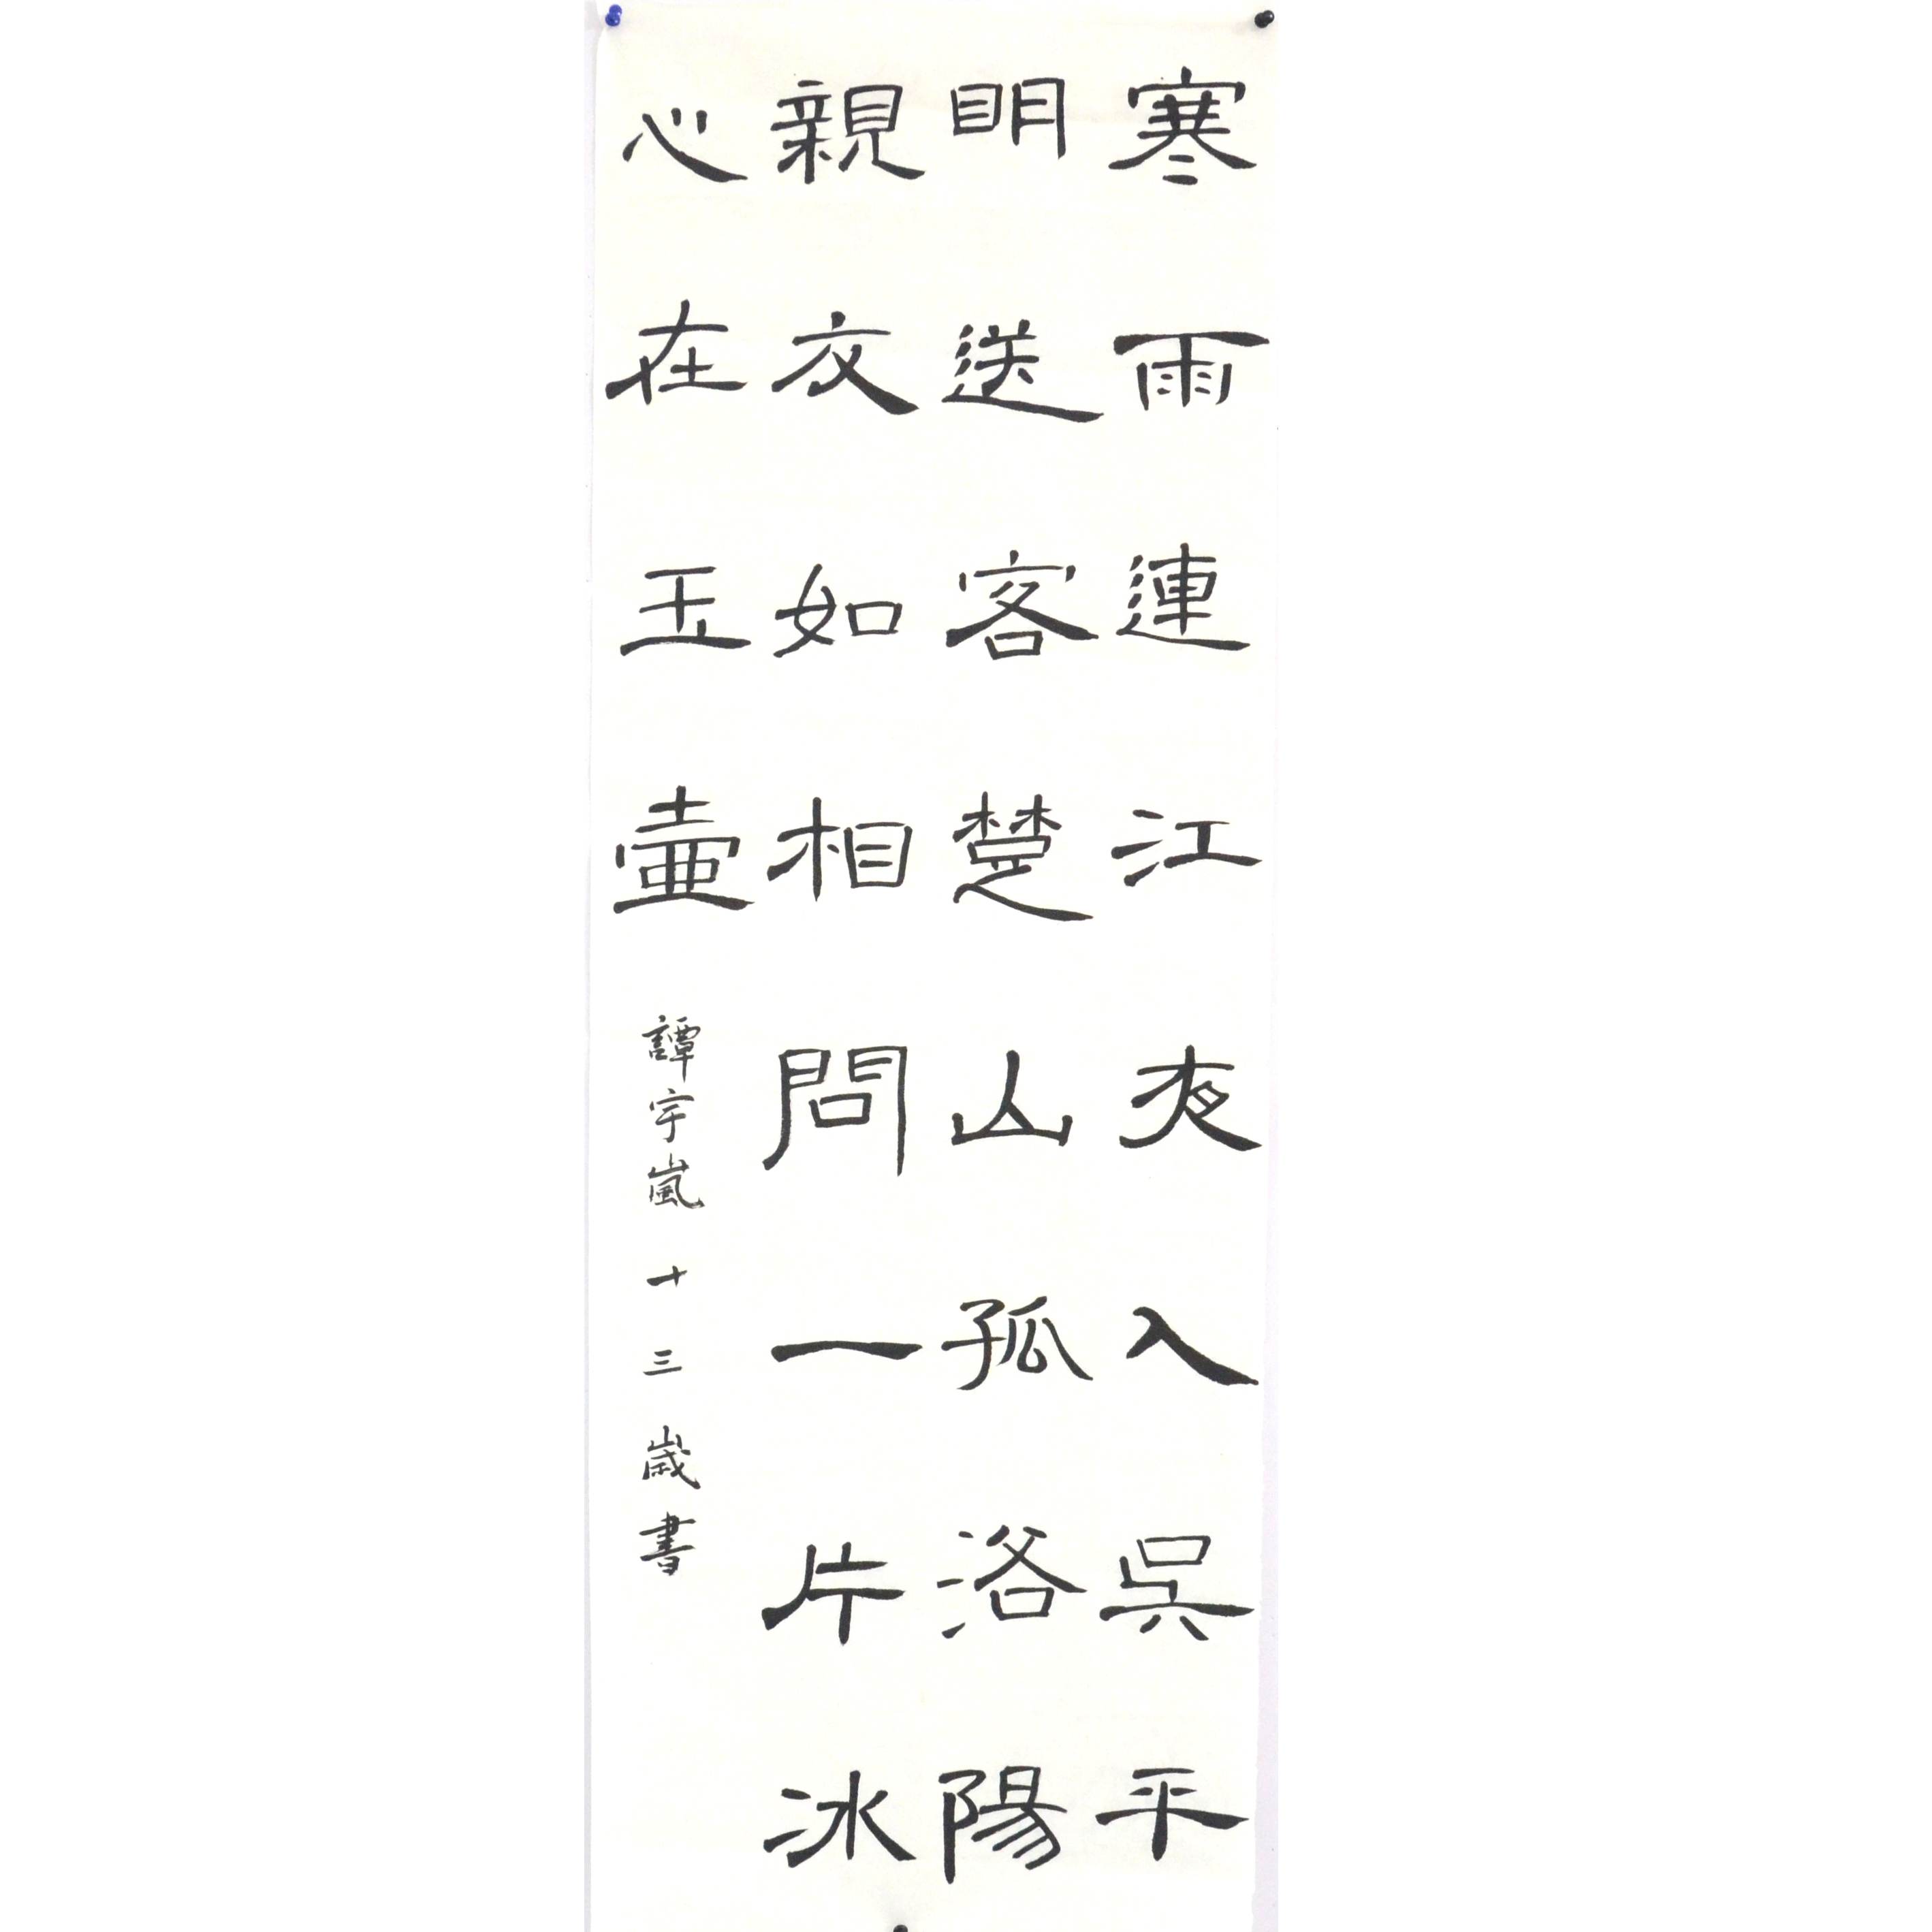 寒雨連江夜入吳平
明送客楚山孤洛陽
親友如相問一片冰
心在玉壺
譚宇嵐十三歲書